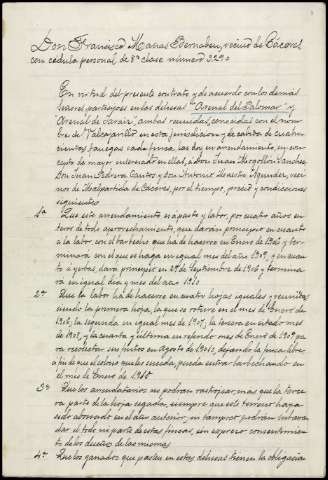 Don Francisco Macias Bernabeu, vecino de Cáceres
con cédula personal de 8ª clase número 3290
En virtud del presente contrato y de acuerdo con los demás
señores partícipes en las dehesas "Arenal del Palomar" y
Arenal de Saraiz, ambas reunidas, conocidas con el nombre
de Valcajarillo en esta jurisdicción y de cabida de cuatro
cientas fanegas cada una, las doy en arrendamiento, en concepto
de mayor interesado en ellas, á Don Juan Mogollon Sanchez
Don Juan Pedrera Cantos y Don Antonio Maestre, vecinos
de Malpartida de Cáceres, por el tiempo, precio y condiciones
siguientes
1ª Que este arrendamiento es á pasto y labor, por cuatro años en
tero de todo aprovechamiento, que darán principio en cuanto
á la labor, con el barbecho que ha de hacerse en Enero de 1906 y ter-
minara con el que se haga en igual mes del año 1909, y en cuan-
to á yerbas, dara principio en 29 de Septiembre de 1906 y termina-
ra en igual dia y mes del año 1910
2ª Que la labor há de hacerse en cuatro hojas iguales y reunidas
siendo la primera hoja, la que se roture en el mes de Enero de
1906, la segunda en igual mes de 1907, la tercera en citado mes
de 1908, y la cuarta y última en referido mes de Enero de 1909 pa
ra recolectar sus frutos en Agosto de 1910, dejando la finca libre
á fin de que el colono que les suceda, pueda entrar barbechando en
el mes de Enero de 1910
3ª Que los arrendatarios no podrán rastrojear, mas que la terce-
ra parte de la hoja segada, siempre que este terreno haya
sido abonado en el año anterior, ni tampoco podrán
el todo ni parte de estas fincas, sin expreso consentimien-
to de los dueños de las mismas
4ª Que los ganados que pasten en estas dehesas tienen la obligación